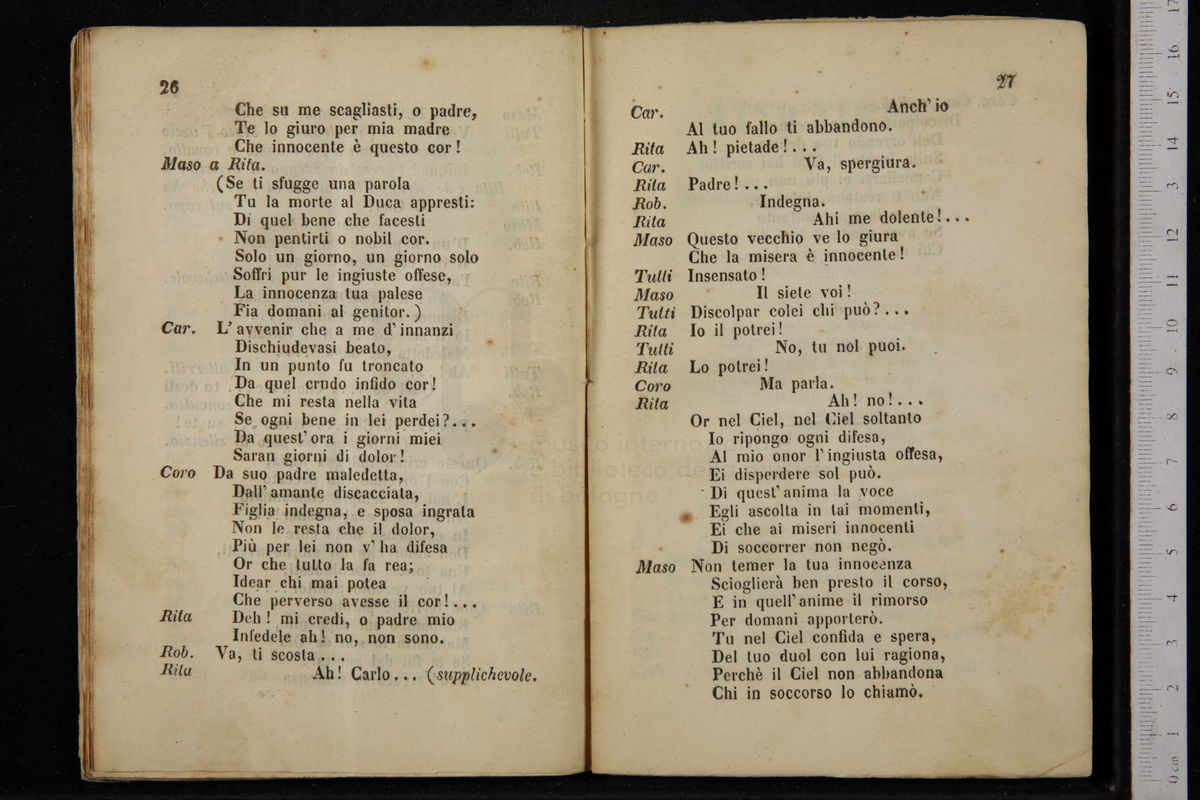 26
Che su me scagliasti, o padre,
Te lo giuro per mia madre
Che innocente è questo cor!
Maso a Rita.
(Se ti sfugge una parola
Tu la morte al Duca appresti:
Di quel bene che facesti
Non pentirti o nobil cor.
Solo un giorno, un giorno solo
Soffri pur le ingiuste offese,
La innocenza tua palese
Fia domani al genitor.)
Car. L'avvenir che a me d'innanzi
Dischiudevasi beato,
In un punto fu troncato
Da quel crudo infido cor!
Che mi resta nella vita
Se ogni bene in lei perdei?...
Da quest'ora i giorni miei
Saran giorni di dolor!
Coro Da suo padre maledetta,
Dall'amante discacciata,
Figlia indegna, e sposa ingrata
Non le resta che il dolor,
Più per lei non v'ha difesa
Or che tutto la fa rea;
Idear chi mai potea
Che perverso avesse il cor!...
Rita Deh! mi credi, o padre mio
Infedele ah! no, non sono.
Rob. Va, ti scosta...
Rita Ah! Carlo... (supplichevole.
27
Car. Anch'io
Al tuo fallo ti abbandono.
Rita Ah! pietade!...
Car. Va, spergiura.
Rita Padre!...
Rob. Indegna.
Rita Ahi me dolente!...
Maso Questo vecchio ve lo giura
Che la misera è innocente!
Tutti Insensato!
Maso Il siete voi!
Tutti Discolpar colei chi può?...
Rita Io il potrei!
Tutti No, tu nol puoi.
Rita Lo potrei!
Coro Ma parla.
Rita Ah! no!...
Or nel Ciel, nel Ciel soltanto
Io ripongo ogni difesa,
Al mio onor l'ingiusta offesa,
Ei disperdere sol può.
Di quest'anima la voce
Egli ascolta in tai momenti,
Ei che ai miseri innocenti
Di soccorrer non negò.
Maso Non temer la tua innocenza
Scioglierà ben presto il corso,
E in quell'anime il rimorso
Per domani apporterò.
Tu nel Ciel confida e spera,
Del tuo duol con lui ragiona,
Perchè il Ciel non abbandona
Chi in soccorso lo chiamò.